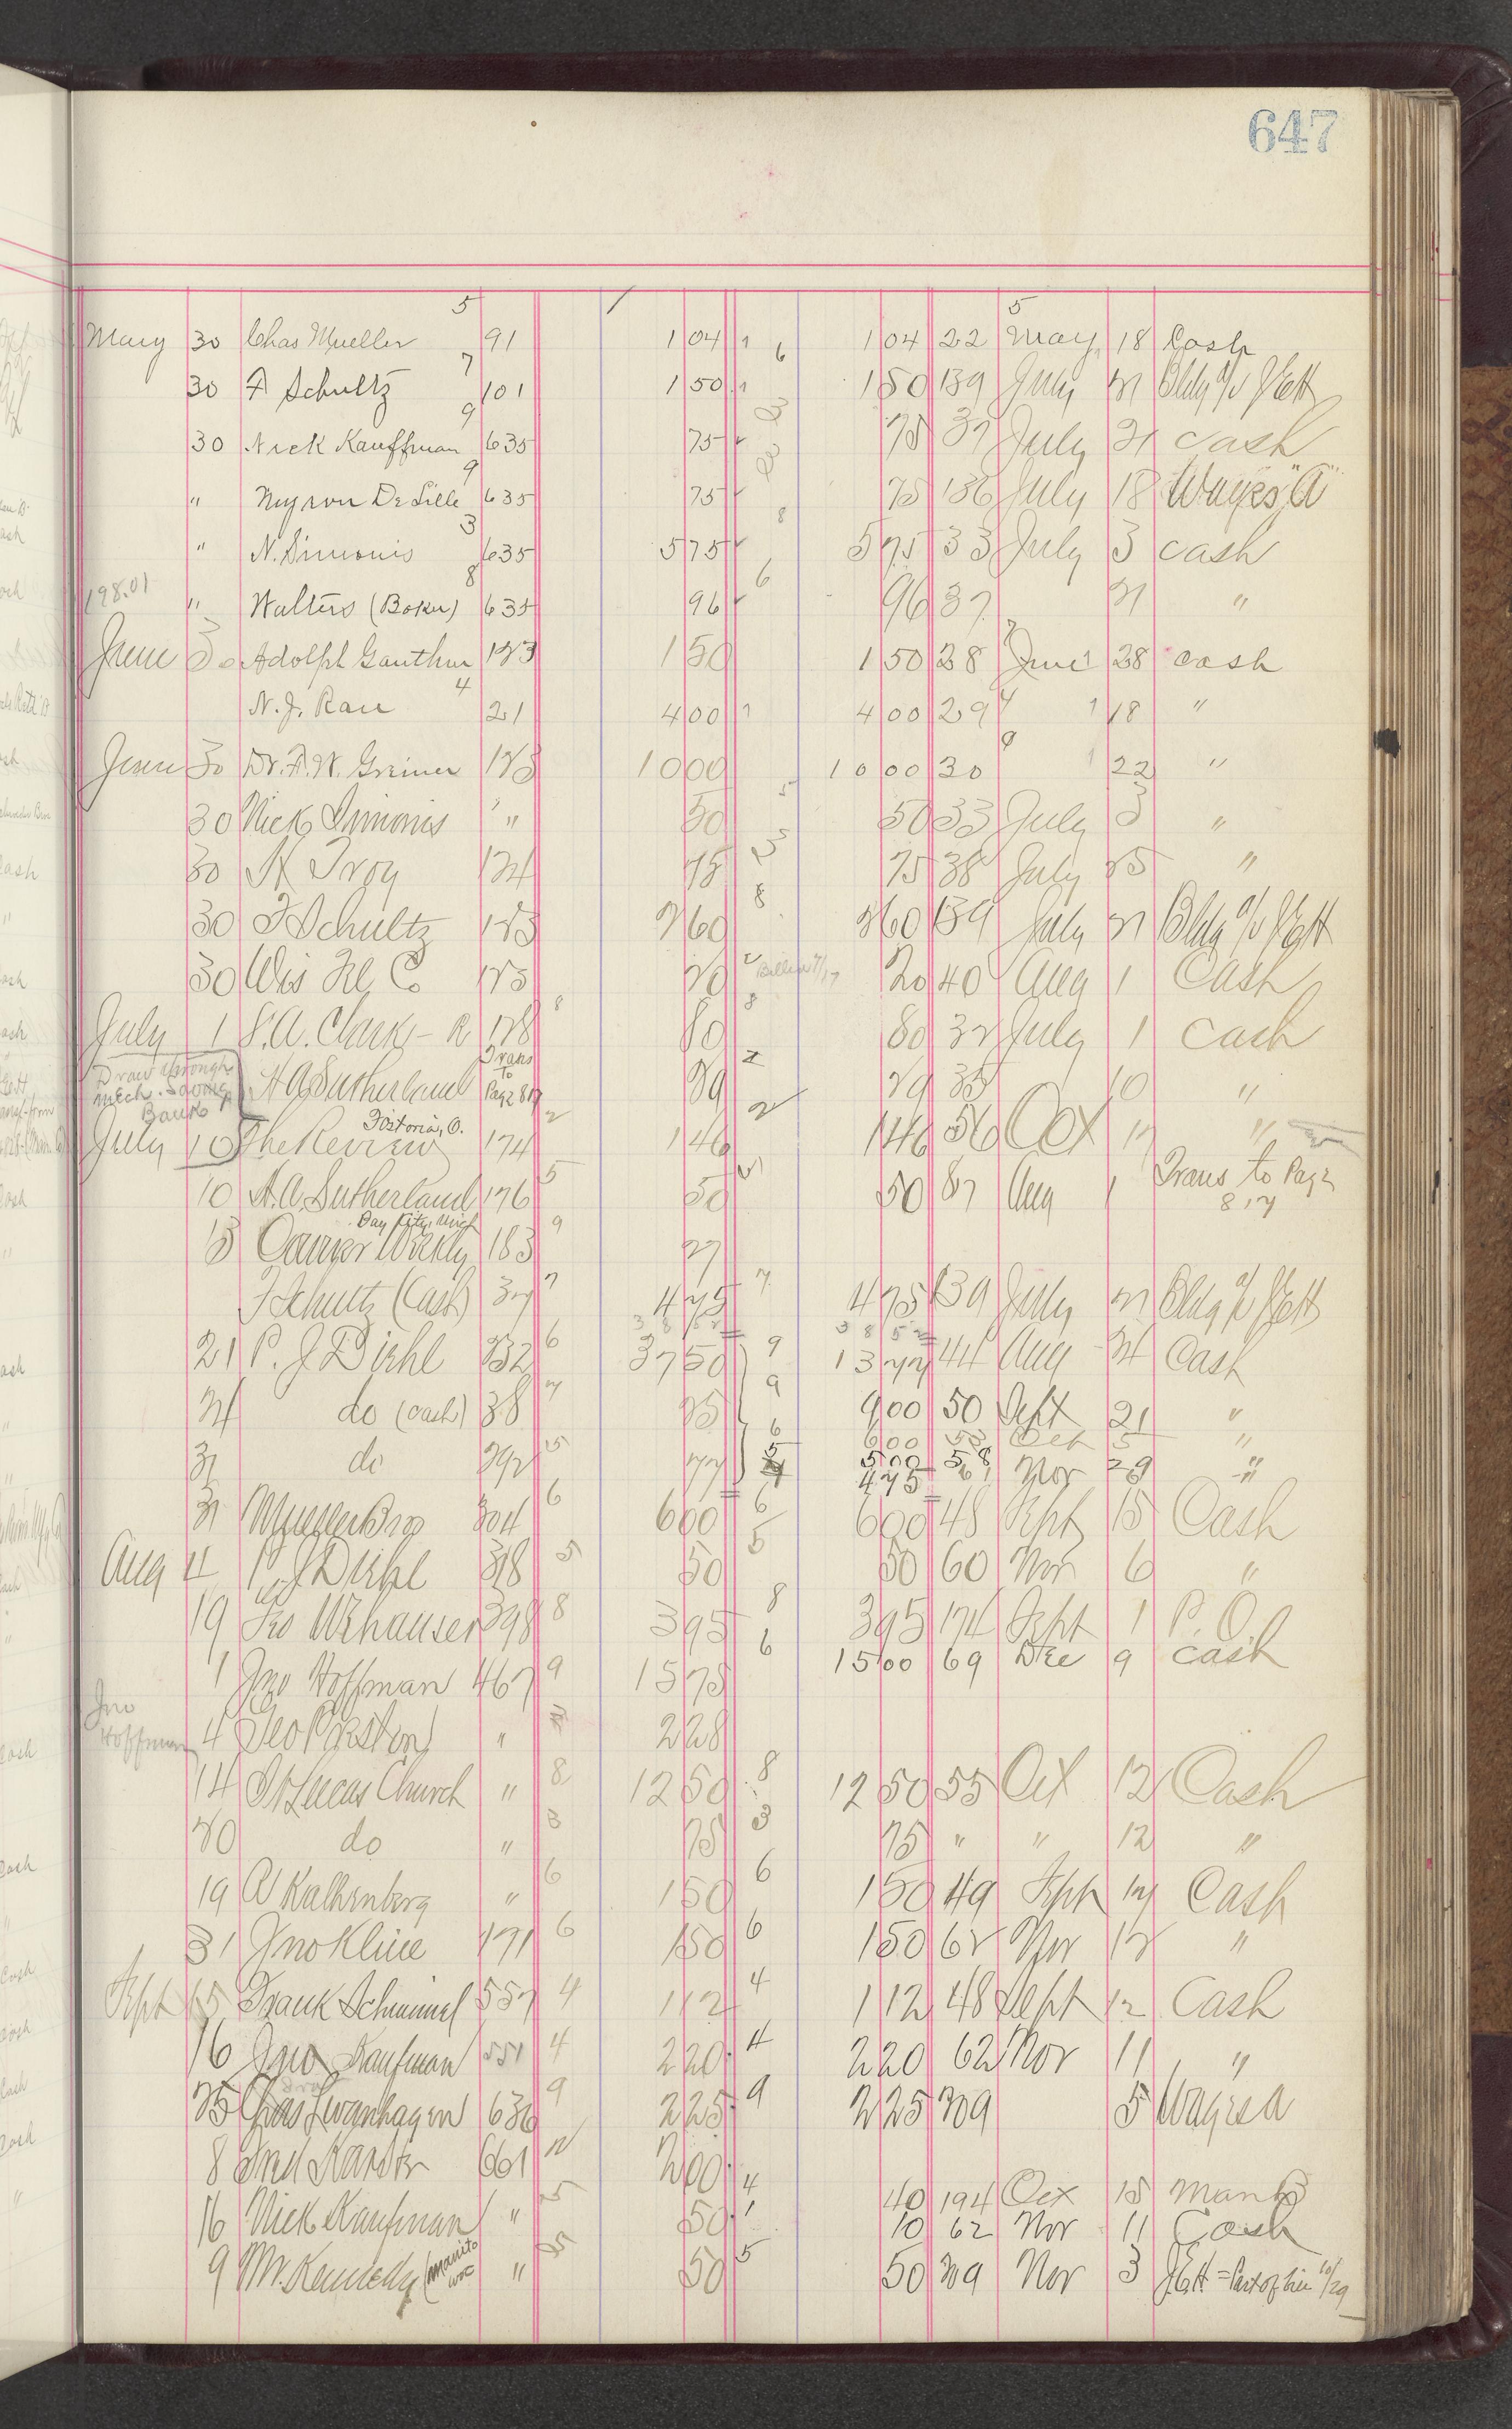 647
5 5
May 30 Chas Mueller 91 1 04 1 04 22 May 18 Cash
7 6
30 F Schultz 101 1 50 1 50 139 July 21 Bldg a/c J.E.H
9
30 Nick Kauffman 635 75 75 37 July 21 cash
9
" Myron De Lille 635 75 75 136 July 18 Wages "A"
3 8
" N. Simonis 635 5 75 5 75 33 July 3 cash
8 6
198.01 " Walters (Boker) 635 96 96 37 21 "
June 30 Adolph Gauthur 123 1 50 1 50 28 June 28 cash
4
N. J. Rau 21 4 00 4 00 29 18 "
June 30 Dr. F. W. Greiner 123 10 00 10 00 30 22 "
30 Nick Simonis " 50 50 33 July 3 "
30 H Troy 124 75 75 38 July 25 "
8
30 F Schultz 123 2 60 2 60 139 July 21 Bldg a/c J.E.H
30 Wis Tel Co 123 20 20 40 Aug 1 Cash
8 8
July 1 S. A. Clark - R 128 80 80 32 July 1 Cash
Draw through Mech. Savings Bank
H A Sutherland Trans To Page 817 29 29 35 10 "
Fostoria, O.
July 10 The Review 174 1 46 1 46 56 Oct 17 "
10 H. A. Sutherland 176 5 50 50 87 Aug 1 Trans to Page
817
Bay City, Mich
13 Weekly 183 9 27
F Schultz (Cash) 37 7 4 75 4 75 139 July 21 Bldg a/c J.E.H
38 52 38 52
21 P. J. Diehl 232 6 37 50 9 13 77 44 Aug 24 Cash
24 do (cash) 38 7 25 9 9 00 50 Sept 21 "
6 6 00 53 Oct 5 "
31 do 292 5 77 5 5 00 58 Nov 29 "
4 75 61
31 Mueller Bro 304 6 6 00 6 6 00 48 Sept 15 Cash
Aug 11 P. J. Diehl 318 5 50 5 50 60 Nov 6 "
19 Geo Wehauser 398 8 3 95 8 3 95 174 Sept 1 P. O.
6 15 00 69 Dec 9 cash
1 Jno Hoffman 467 9 15 75
Jno Hoffman 4 Geo Preston " 2 28
14 St Lucas Church " 8 12 50 8 12 50 55 Oct 12 Cash
20 do " 3 75 3 75 " " 12 "
19 A Kalkenberg " 6 1 50 6 1 50 49 Sept 17 Cash
31 Jno Kline 471 6 1 50 6 1 50 62 Nov 12 "
Sept 15 Frank Schimmel 557 4 1 12 4 1 12 48 Sept 12 Cash
16 Jno Kaufman 551 4 2 20 4 2 20 62 Nov 11 "
25 Chas Swanhagen 636 9 2 25 9 2 25 209 5 Wages A
8 Fred Karsten 661 2 00
4 40 194 Oct 15 Man B
16 Nick Kaufman " 5 50 1 10 62 Nov 11 Cash
9 Mr. Kennedy (Manitowoc " 5 50 5 50 209 Nov 3 J.E.H = Part of his 10/29